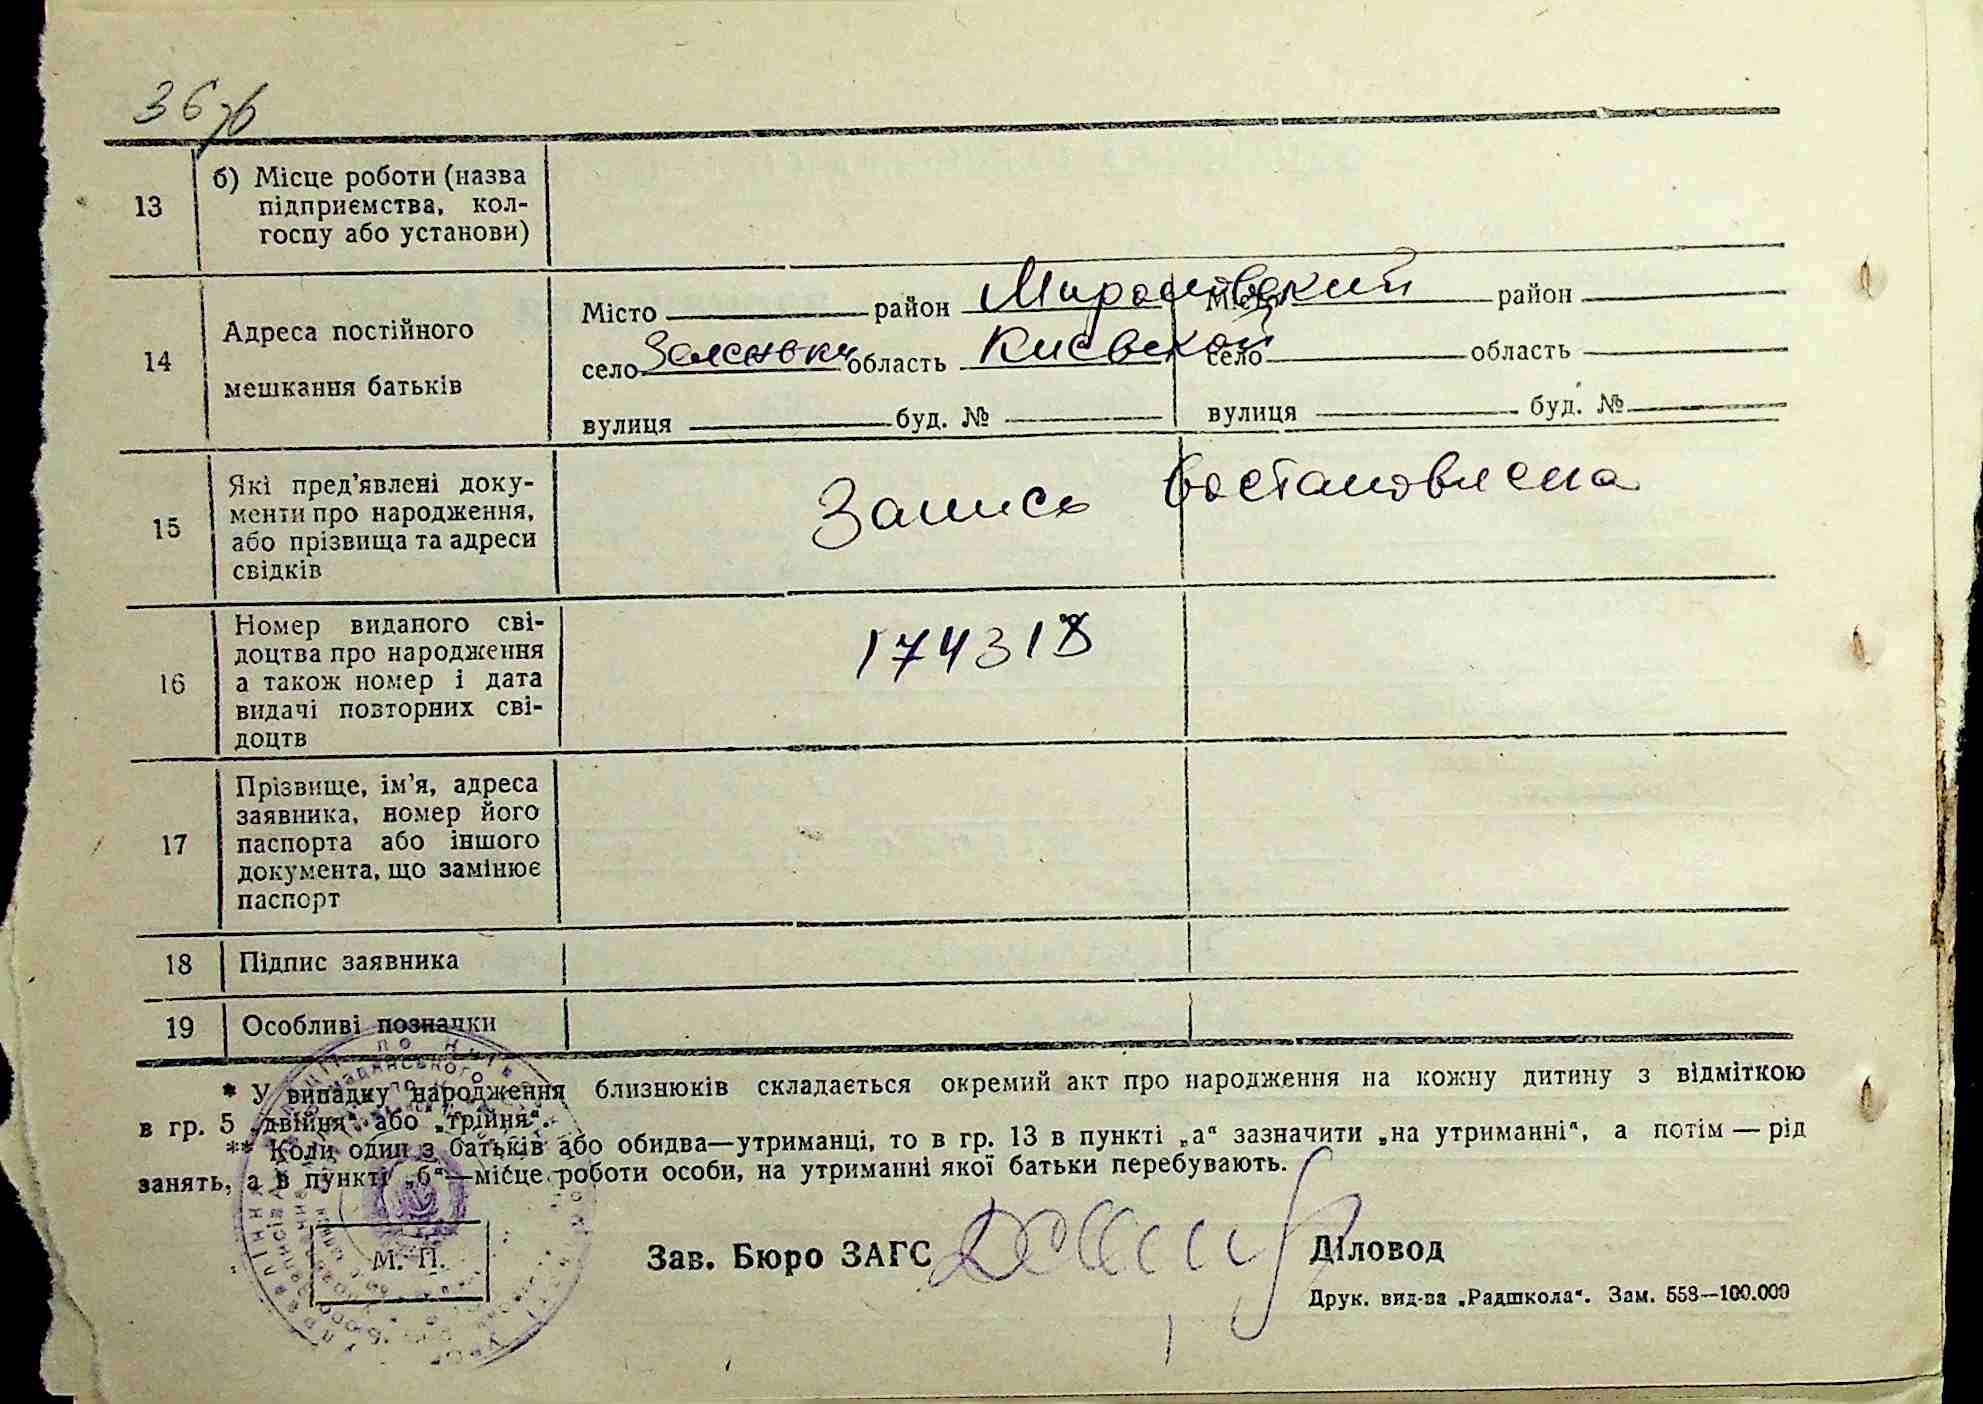 36
13
б) Місце роботи (назва
підприємства, кол-
госпу або установи)
14
Адреса постійного
мешкання батьків
Місто район Мироновский Місто район
село Зеленьки область Киевской село область
вулиця буд. № вулиця буд. №
15
Які пред'явлені доку-
менти про народження,
або прізвища та адреси
свідків
Запись востановлена
16
Номер виданого сві-
доцтва про народження
а також номер і дата
видачі повторних сві-
доцтв
174318
17
Прізвище, ім'я, адреса
заявника, номер його
паспорта або іншого
документа, що замінює
паспорт
18 Підпис заявника
19 Особливі позначки
* У випадку народження близнюків складається окремий акт про народження на кожну дитину з відміткою
в гр. 5 „двійня“ або „трійня“.
** Коли один з батьків або обидва—утриманці, то в гр. 13 в пункті „а“ зазначити „на утриманні“, а потім — рід
занять, а в пункті „б“—місце роботи особи, на утриманні якої батьки перебувають.
М. П.
Зав. Бюро ЗАГС Діловод
Друк. вид-ва „Радшкола“. Зам. 558—100.000